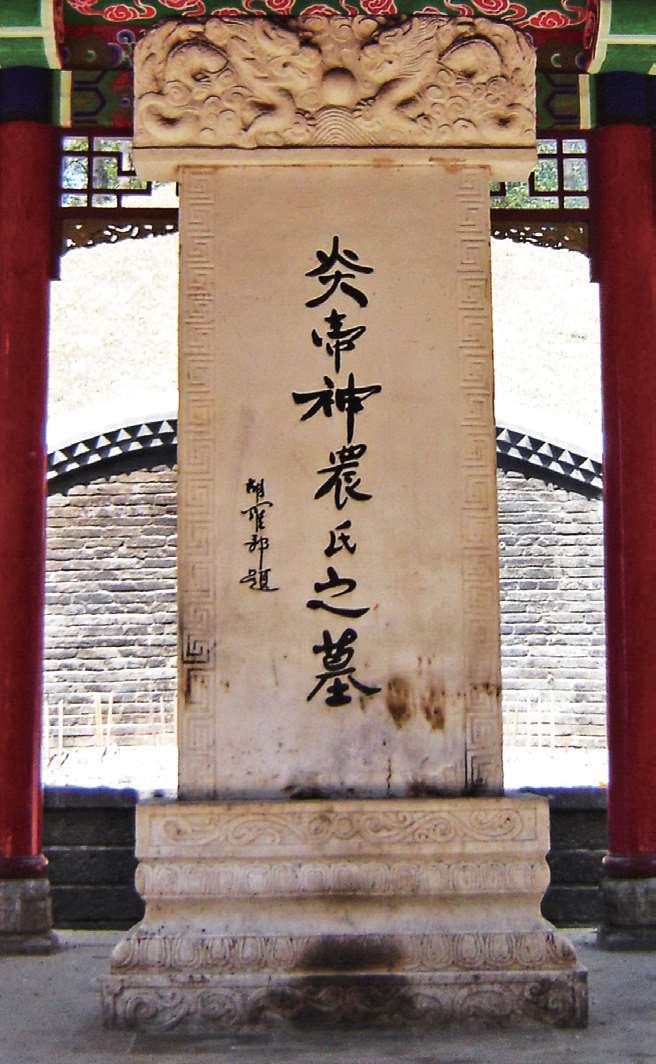 炎帝神農氏之墓
胡耀邦題